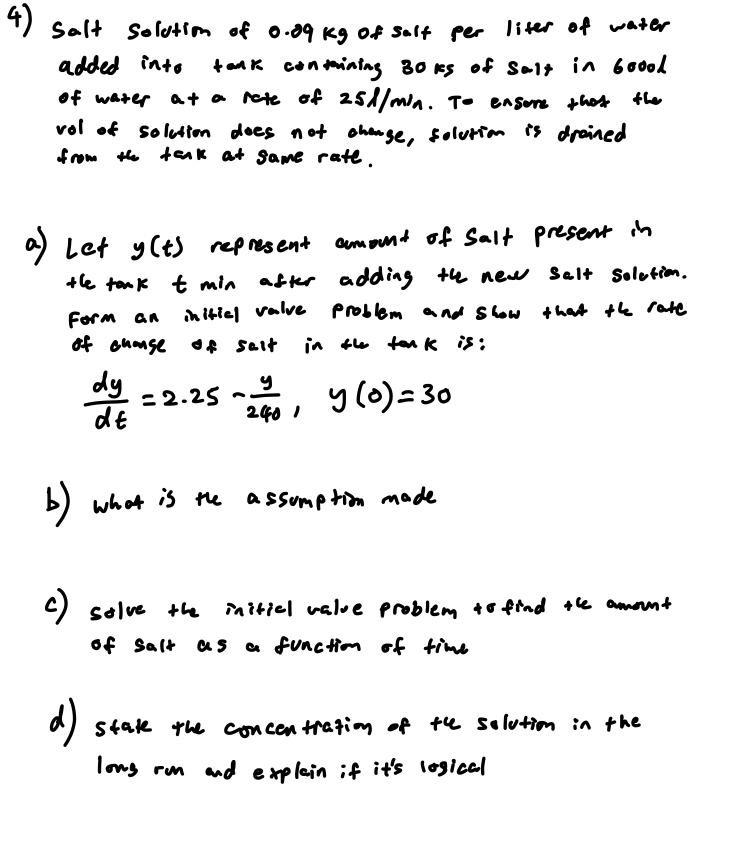 4) Salt Solution of 0.09 kg of salt per liter of water
added into tank containing 30 kg of salt in 6000l
of water at a rate of 25l/min. To ensure that the
vol of solution does not change, solution is drained
from the tank at same rate.
a) Let y(t) represent amount of Salt present in
the tank t min after adding the new salt solution.
Form an initial value problem and show that the rate
of change of salt in the tank is:
dy/dt = 2.25 - y/240 , y(0)=30
b) what is the assumption made
c) solve the initial value problem to find the amount
of salt as a function of time
d) state the concentration of the solution in the
long run and explain if it's logical